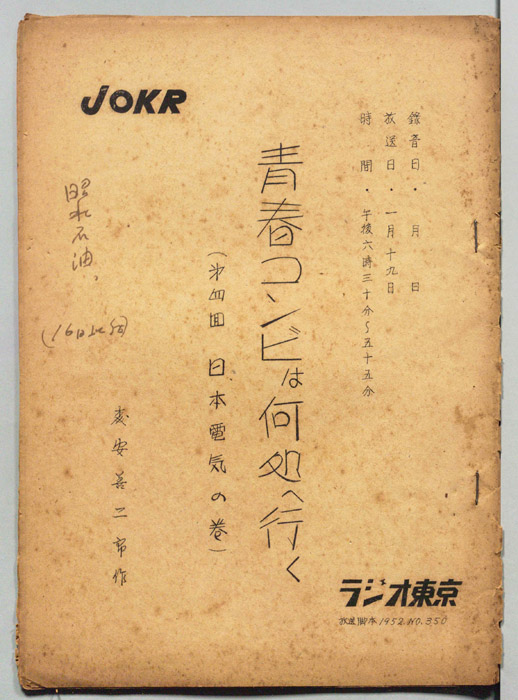 JOKR
錄音日・　月　日
放送日・一月十九日
時間・午後六時三十分〜五十五分
青春コンビは何処へ行く
(第四回 日本電気の巻)
安善二郎作
昭和石油
(16日
ラジオ東京
放送脚本1952.NO.350